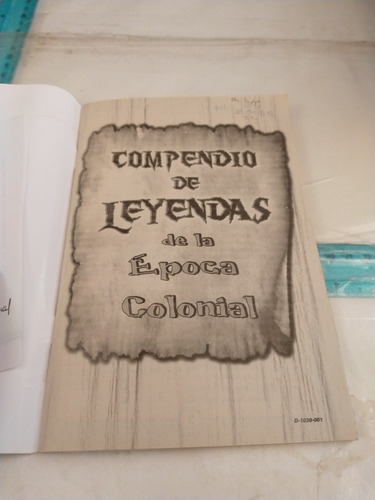 COMPENDIO
DE
LEYENDAS
de la
Época
Colonial
D-1039-001